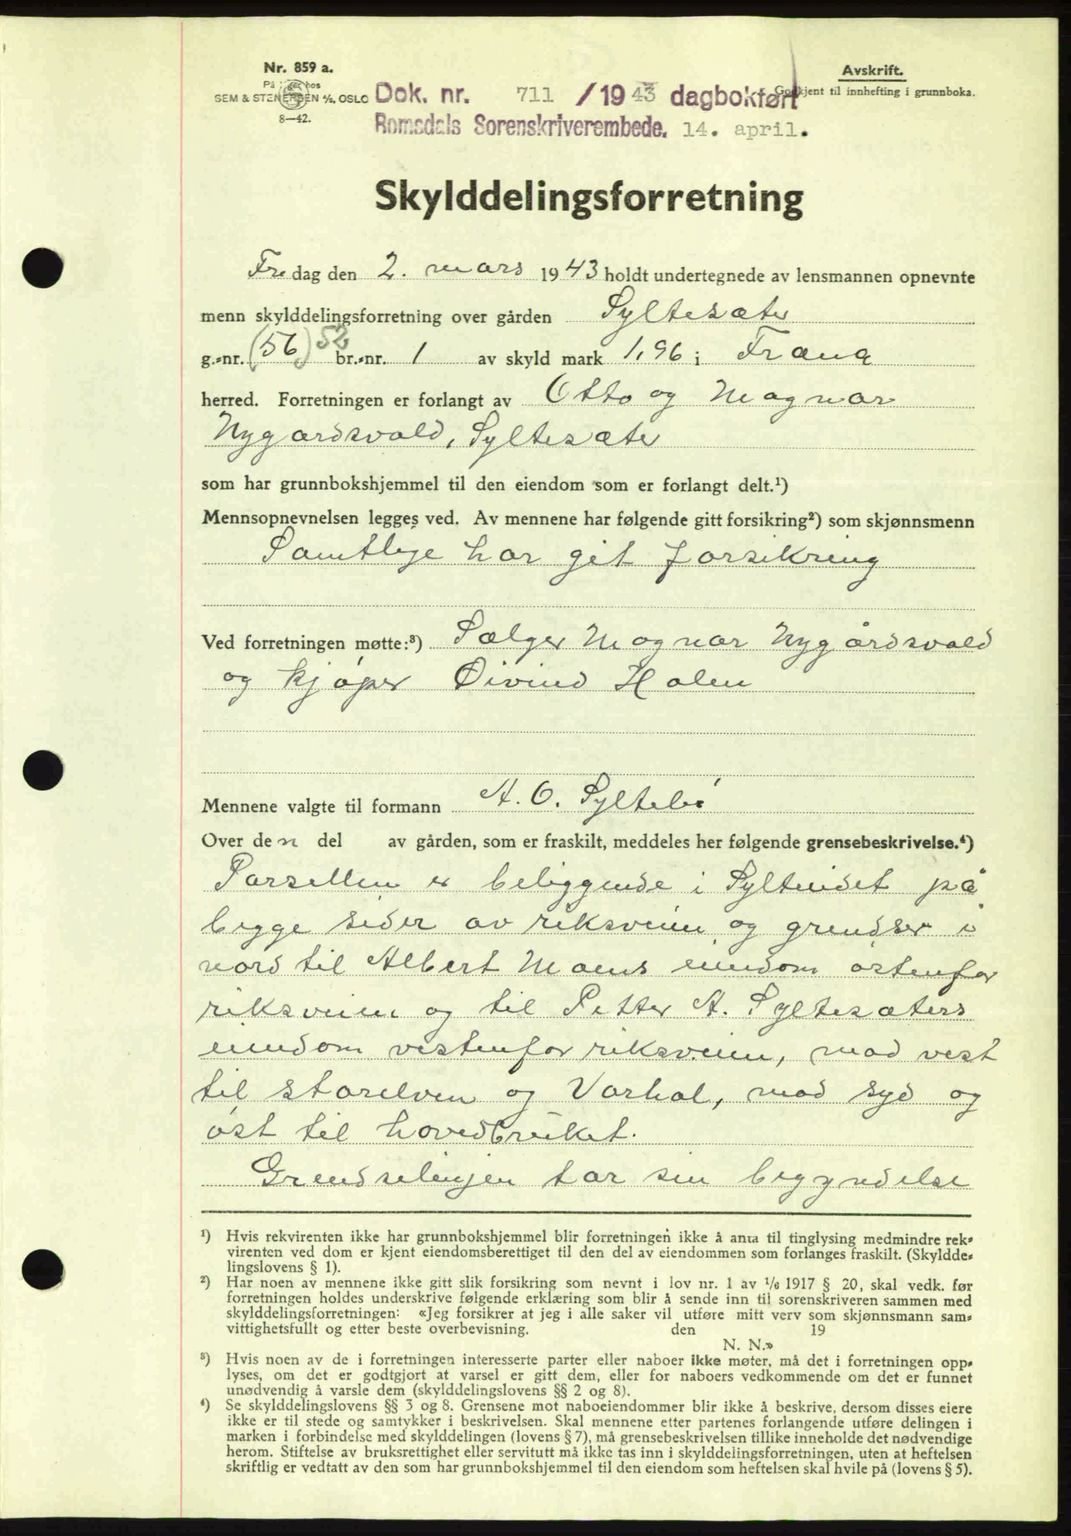 Nr. 859 a.
På lager hos
SEM & STENERSEN A/S, OSLO
8—42.
Avskrift.
Godkjent til innhefting i grunnboka.
Dok. nr. 711 /1943 dagbokført
Romsdals Sorenskriverembede. 14. april.
Skylddelingsforretning
Fredag den 2. mars 1943 holdt undertegnede av lensmannen opnevnte
menn skylddelingsforretning over gården Syltesæter
g.-nr. (56) 52 br.-nr. 1 av skyld mark 1,96 i Fræna
herred. Forretningen er forlangt av Otto og Magnar
Nygardsvold, Syltesæter
som har grunnbokshjemmel til den eiendom som er forlangt delt.¹)
Mennsopnevnelsen legges ved. Av mennene har følgende gitt forsikring²) som skjønnsmenn
Samtlige har git forsikring
Ved forretningen møtte:³) Sælger Magnar Nygårdsvold
og kjøper Øivind Holen
Mennene valgte til formann A. O. Syltebø
Over den del av gården, som er fraskilt, meddeles her følgende grensebeskrivelse.⁴)
Parsellen er beliggende i Sylteidet på
begge sider av riksveien og grendser i
nord til Albert Moens eiendom østenfor
riksveien og til Petter A. Syltesæters
eiendom vestenfor riksveien, mod vest
til storelven og Varhol, mod syd og
øst til hovedbruket.
Grendselinjen tar sin begyndelse
¹) Hvis rekvirenten ikke har grunnbokshjemmel blir forretningen ikke å anta til tinglysing medmindre rek-
virenten ved dom er kjent eiendomsberettiget til den del av eiendommen som forlanges fraskilt. (Skyldde-
lingslovens § 1).
²) Har noen av mennene ikke gitt slik forsikring som nevnt i lov nr. 1 av 1/6 1917 § 20, skal vedk. før
forretningen holdes underskrive følgende erklæring som blir å sende inn til sorenskriveren sammen med
skylddelingsforretningen: «Jeg forsikrer at jeg i alle saker vil utføre mitt verv som skjønnsmann sam-
vittighetsfullt og etter beste overbevisning. den 19
N. N.»
³) Hvis noen av de i forretningen interesserte parter eller naboer ikke møter, må det i forretningen opp-
lyses, om det er godtgjort at varsel er gitt dem, eller for naboers vedkommende om det er funnet
unødvendig å varsle dem (skylddelingslovens §§ 2 og 8).
⁴) Se skylddelingslovens §§ 3 og 8. Grensene mot naboeiendommer blir ikke å beskrive, dersom disses eiere
ikke er til stede og samtykker i beskrivelsen. Skal mennene etter partenes forlangende utføre delingen i
marken i forbindelse med skylddelingen (lovens § 7), må grensebeskrivelsen tillike inneholde det nødvendige
herom. Stiftelse av bruksrettighet eller servitutt må ikke tas inn i skylddelingsforretningen, uten at heftelsen
skriftlig er vedtatt av den som har grunnbokshjemmel til den eiendom som heftelsen skal hvile på (lovens § 5).